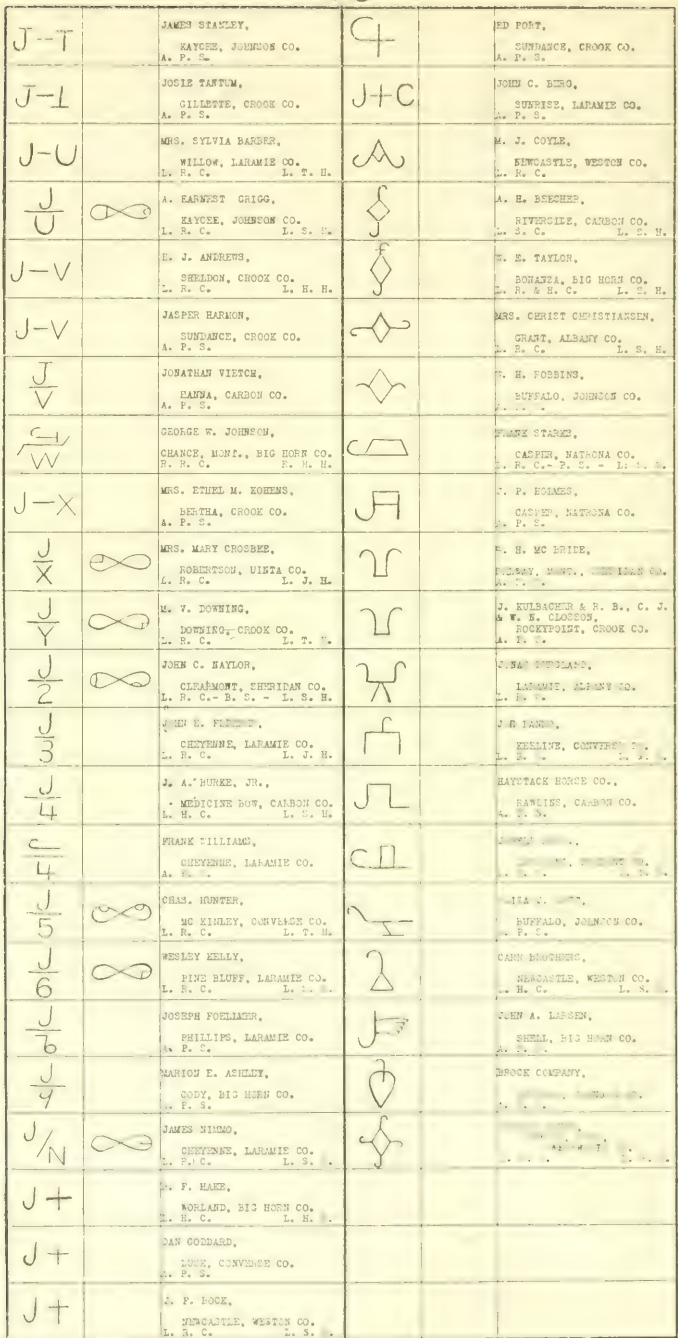 J--T
JAMES STANLEY,
KAYCEE, JOHNSON CO.
A. P. S.
J-⊥
JOSIE TANTUM,
GILLETTE, CROOK CO.
A. P. S.
J-U
MRS. SYLVIA BARBER,
WILLOW, LARAMIE CO.
L. R. C. L. T. H.
J
U
A. EARNEST GRIGG,
KAYCEE, JOHNSON CO.
L. R. C. L. S.
J-V
E. J. ANDREWS,
SHELDON, CROOK CO.
L. R. C. L. H. H.
J-V
JASPER HARMON,
SUNDANCE, CROOK CO.
A. P. S.
J
V
JONATHAN VIETCH,
HANNA, CARBON CO.
A. P. S.
W
GEORGE W. JOHNSON,
CHANCE, MONT., BIG HORN CO.
R. R. C. R. H. H.
J-X
MRS. ETHEL M. KOHENS,
BERTHA, CROOK CO.
A. P. S.
J
X
MRS. MARY CROSBEE,
ROBERTSON, UINTA CO.
L. R. C. L. J. H.
J
Y
M. V. DOWNING,
DOWNING, CROOK CO.
L. R. C. L. T.
J
2
JOHN C. NAYLOR,
CLEARMONT, SHERIDAN CO.
L. R. C.- B. S. - L. S. H.
J
3
CHEYENNE, LARAMIE CO.
L. R. C. L. J. H.
J
4
J. A. BURKE, JR.,
MEDICINE BOW, CARBON CO.
L. H. C. L. S. H.
4
FRANK WILLIAMS,
CHEYENNE, LARAMIE CO.
A.
J
5
CHAS. HUNTER,
MC KINLEY, CONVERSE CO.
L. R. C. L. T. H.
J
6
WESLEY KELLY,
PINE BLUFF, LARAMIE CO.
L. R. C. L.
J
6
JOSEPH FOELLMER,
PHILLIPS, LARAMIE CO.
A. P. S.
J
9
MARION E. ASHLEY,
CODY, BIG HORN CO.
P. S.
J/N
JAMES NIMMO,
CHEYENNE, LARAMIE CO.
L. R. C. L. S.
J+
F. HAKE,
WORLAND, BIG HORN CO.
L. H. C. L. H.
J+
DAN GODDARD,
LUSK, CONVERSE CO.
A. P. S.
J+
J. F. BOCK,
NEWCASTLE, WESTON CO.
L. R. C. L. S.
ED PORT,
SUNDANCE, CROOK CO.
A. P. S.
J+C
JOHN C. BERG,
SUNRISE, LARAMIE CO.
A. P. S.
M. J. COYLE,
NEWCASTLE, WESTON CO.
L. R. C.
A. H. BEECHER,
RIVERSIDE, CARBON CO.
L. S. C. L. S. H.
E. TAYLOR,
BONANZA, BIG HORN CO.
L. R. & H. C. L. S. H.
MRS. CHRIST CHRISTIANSEN,
GRANT, ALBANY CO.
L. R. C. L. S. H.
H. ROBBINS,
BUFFALO, JOHNSON CO.
FRANK STARKS,
CASPER, NATRONA CO.
L. R. C.- P. S. - L.
J. P. HOLMES,
CASPER, NATRONA CO.
A. P. S.
H. MC BRIDE,
J. KULBACHER & R. B., C. J.
& W. N. CLOSSON,
ROCKYPOINT, CROOK CO.
LARAMIE, ALBANY CO.
KEELINE,
HAYSTACK HORSE CO.,
RAWLINS, CARBON CO.
BUFFALO, JOHNSON CO.
P. S.
CARR BROTHERS,
NEWCASTLE, WESTON CO.
H. C. L. S.
JOHN A. LARSEN,
SHELL, BIG HORN CO.
BROCK COMPANY,